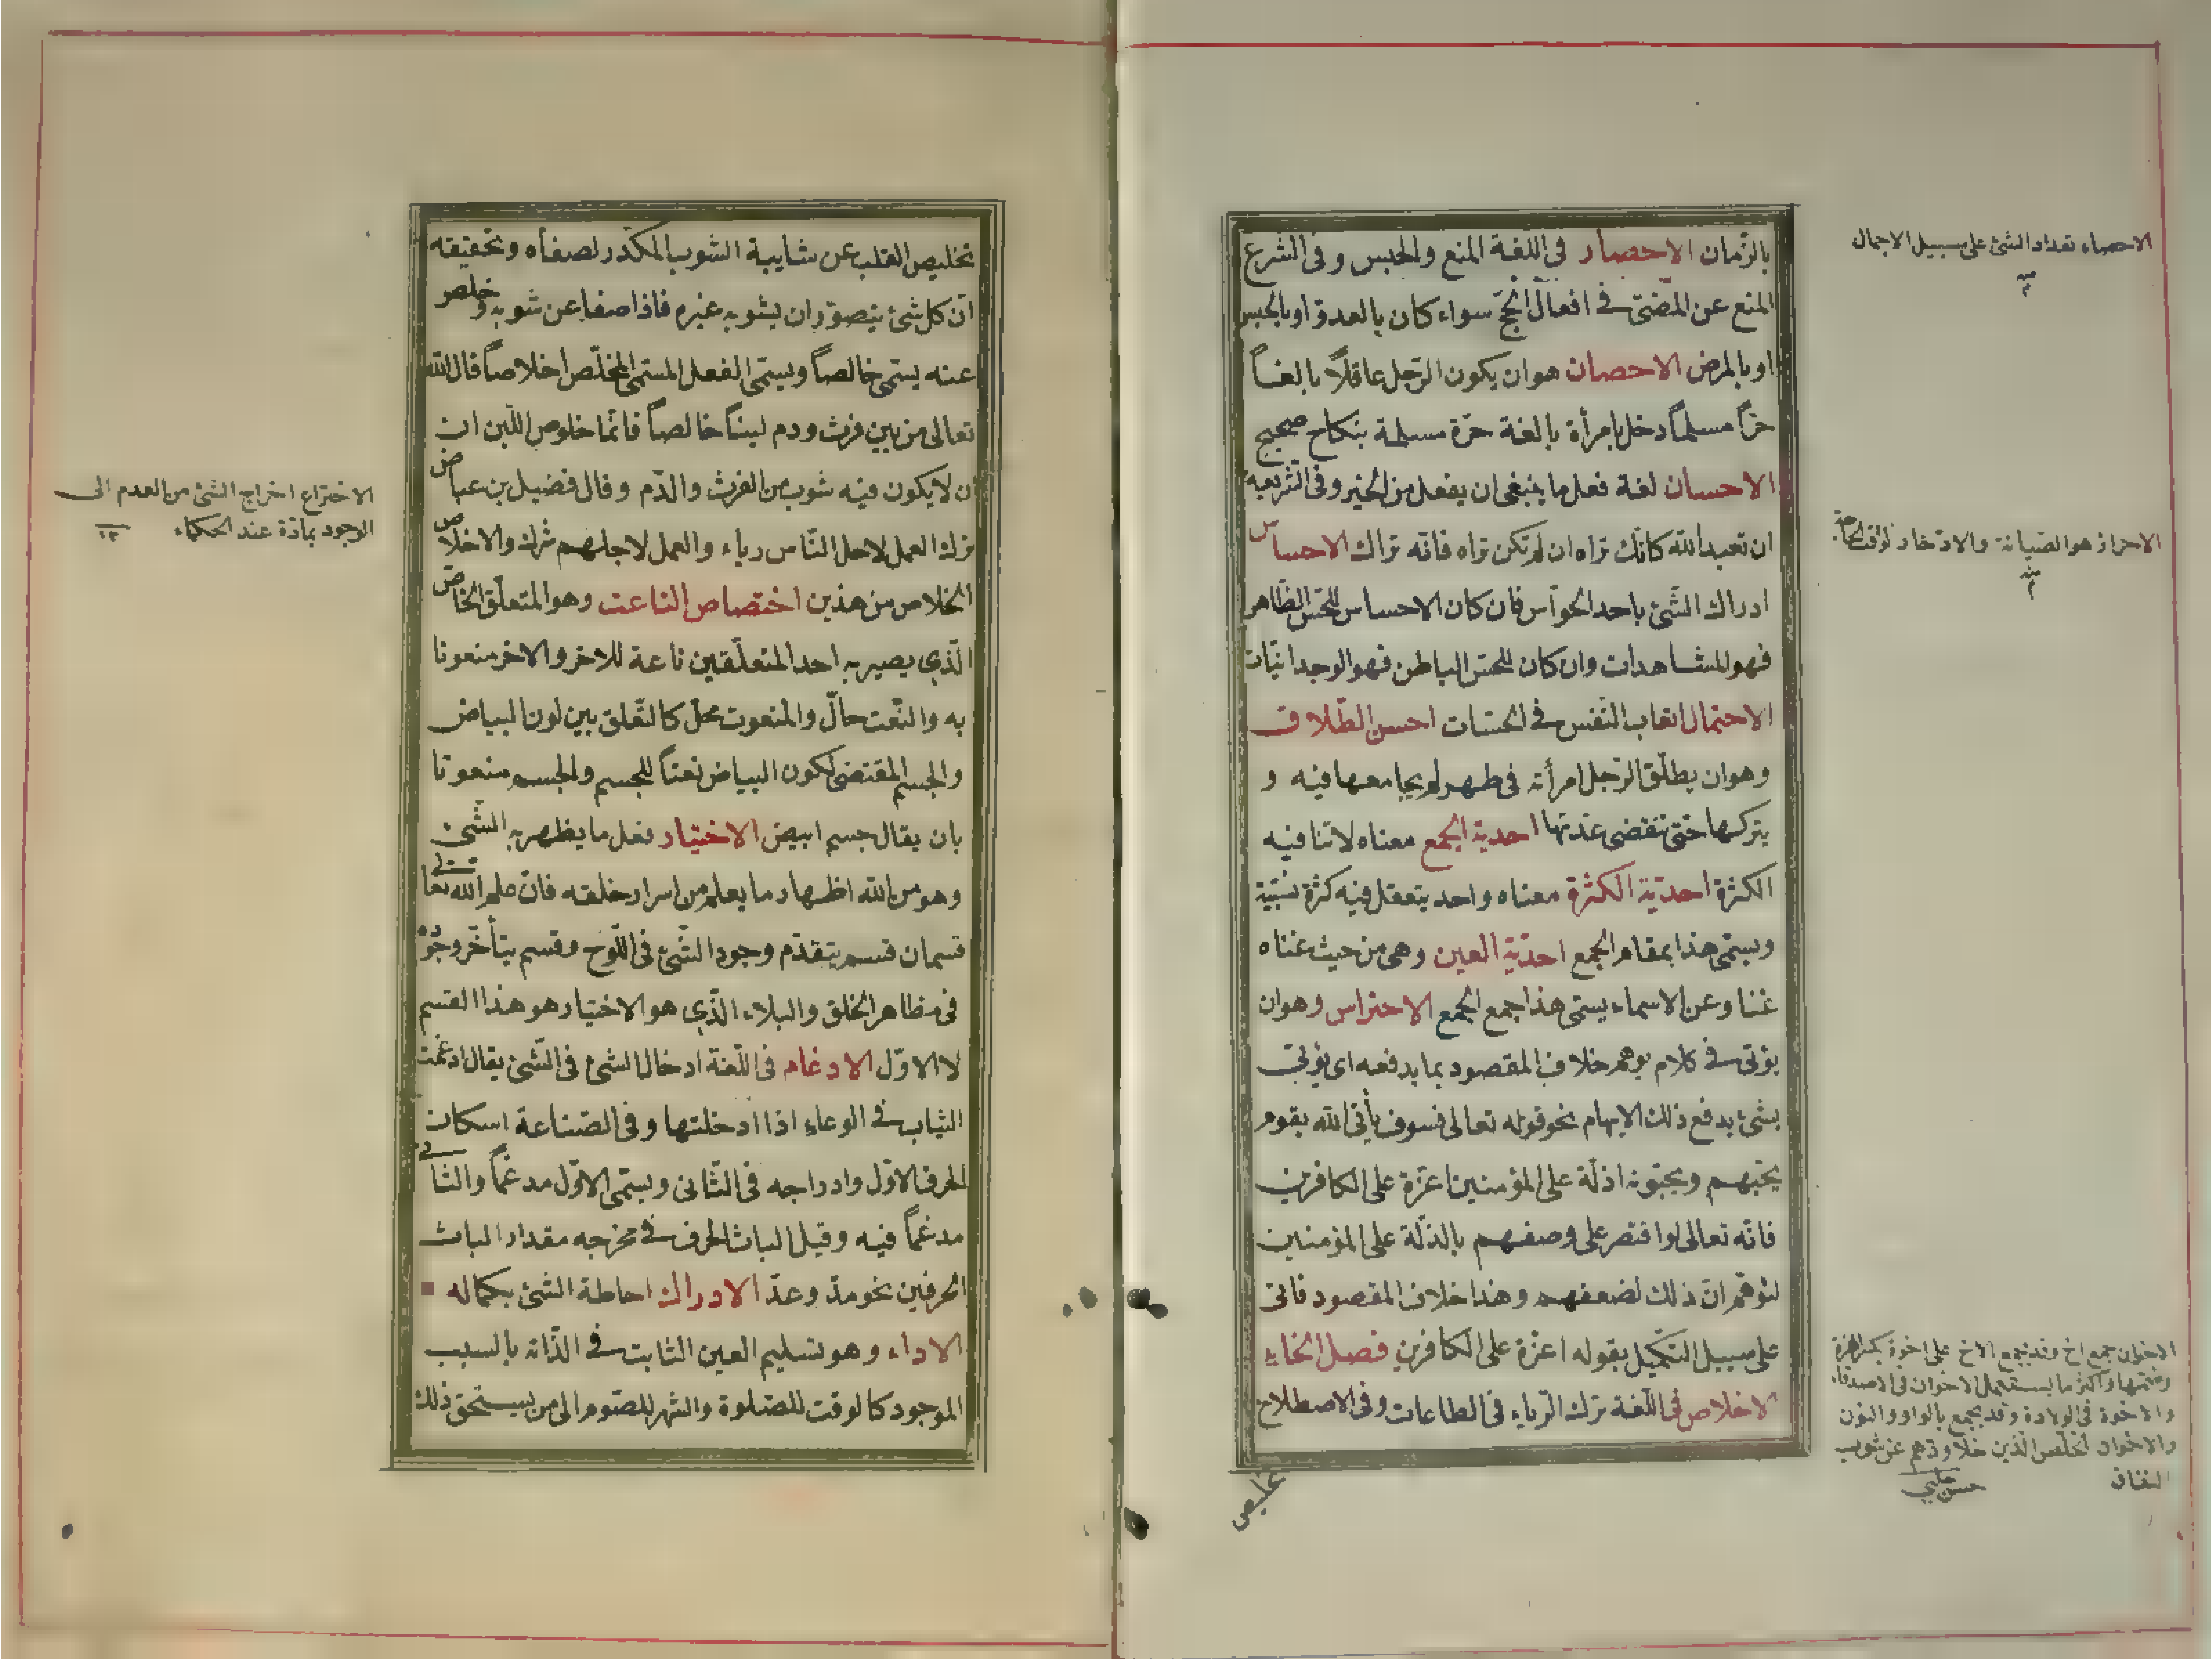 بالزمان الاحصار في اللغة المنع والحبس وفي الشرع
المنع عن المضى في افعال الحج سواء كان بالعدو او بالحبس
او بالمرض الاحصان هو ان يكون الرجل عاقلاً بالغاً
حرّاً مسلماً دخل بامرأة بالغة حرّة مسلمة بنكاح صحيح
الاحسان لغة فعل ما ينبغى ان يفعل من الخير وفى الشريعة
ان تعبد الله كانّك تراه ان لم تكن تراه فانّه تراك الاحساس
ادراك الشئ باحد الحواس فان كان الاحساس للحس الظاهر
فهو المشاهدات وان كان للحس الباطن فهو الوجدانيّات
الاحتمال اتعاب النفس فى الحسنات احسن الطّلاق
وهو ان يطلّق الرّجل امرأته فى طهر لم يجامعها فيه و
يتركها حتى تنقضى عدّتها احدية الجمع معناه لا تنافيه
الكثرة احديّة الكثرة معناه واحد يتعقل فيه كثرة نسبية
ويسمى هذا بمقام الجمع احديّة العين وهى من حيث غناه
غنا وعن الاسماء يسمى هذا جمع الجمع الاحتراس وهو ان
يؤتى فى كلام يوهم خلاف المقصود بما يدفعه اى يؤتى
بشئ يدفع ذلك الايهام نحو قوله تعالى فسوف يأتى الله بقوم
يحبهم ويحبونه اذلّة على المؤمنين اعزّة على الكافرين
فانّه تعالى لو اقتصر على وصفهم بالذلّة على المؤمنين
لتوهّم انّ ذلك لضعفهم وهذا خلاف المقصود فاتى
على سبيل التكميل بقوله اعزّة على الكافرين فصل الخاء
الاخلاص فى اللّغة ترك الرياء فى الطاعات وفى الاصطلاح
تخليص
الاحصاء تعداد الشئ على سبيل الاجمال
منه
الاحراز هو الصيانة والادخار لوقت الحاجة
منه
الاخوان جمع اخ وقد يجمع الاخ على اخوة بكسر الهمزة
وضمها واكثر ما يستعمل الاخوان فى الاصدقاء
والاخوة فى الولادة وقد يجمع بالواو والنون
والاخوان الخلّص الذين خلا ودهم عن شوب
النفاق حسن چلبي
تخليص القلب عن شايبة الشوب المكدّر لصفاه وتحقيقه
انّ كل شئ يتصوّر ان يشوبه غيره فاذا صفا عن شوبه وخلص
عنه يسمى خالصاً ويسمى الفعل المستمى المخلّص اخلاصاً قال الله
تعالى من بين فرث ودم لبناً خالصاً فانّما خلوص اللّبن ان
ان لا يكون فيه شوب من الفرث والدّم وقال فضيل بن عياض
ترك العمل لاجل النّاس رياء والعمل لاجلهم شرك والاخلاص
الخلاص من هذين اختصاص الناعت وهو المتعلّق الخاصّ
الّذى يصير به احد المتعلّقين ناعة للاخر والاخر منعوتا
به والنّعت حالّ والمنعوت محلّ كالتّعلق بين لون البياض
والجسم المقتضى لكون البياض نعتاً للجسم والجسم منعوتا
بان يقال جسم ابيض الاختيار فعل ما يظهر به الشّئ
وهو من الله اظهار ما يعلم من اسرار خلقه فانّ علم الله تعالى
قسمان قسم يتقدّم وجود الشّئ فى اللّوح وقسم يتأخّر وجوده
فى مظاهر الخلق والبلاء الّذى هو الاختيار هو هذا القسم
لا الاوّل الادغام فى اللّغة ادخال الشئ فى الشّئ يقال ادغمت
الثياب فى الوعاء اذا ادخلتها وفى الصّناعة اسكان
الحرف الاوّل وادراجه فى الثّانى ويسمّى الاوّل مدغماً والثانى
مدغماً فيه وقيل الباث الحرف فى مخرجه مقدار الباث
الحرفين نحو مدّ وعدّ الادراك احاطة الشئ بكماله
الاداء وهو تسليم العين الثابت فى الذّمّة بالسبب
الموجود كالوقت للصّلوة والشهر للصّوم الى من يستحق ذلك
الاختراع اخراج الشئ من العدم الى
الوجود بمادّة عند الحكماء
١٢